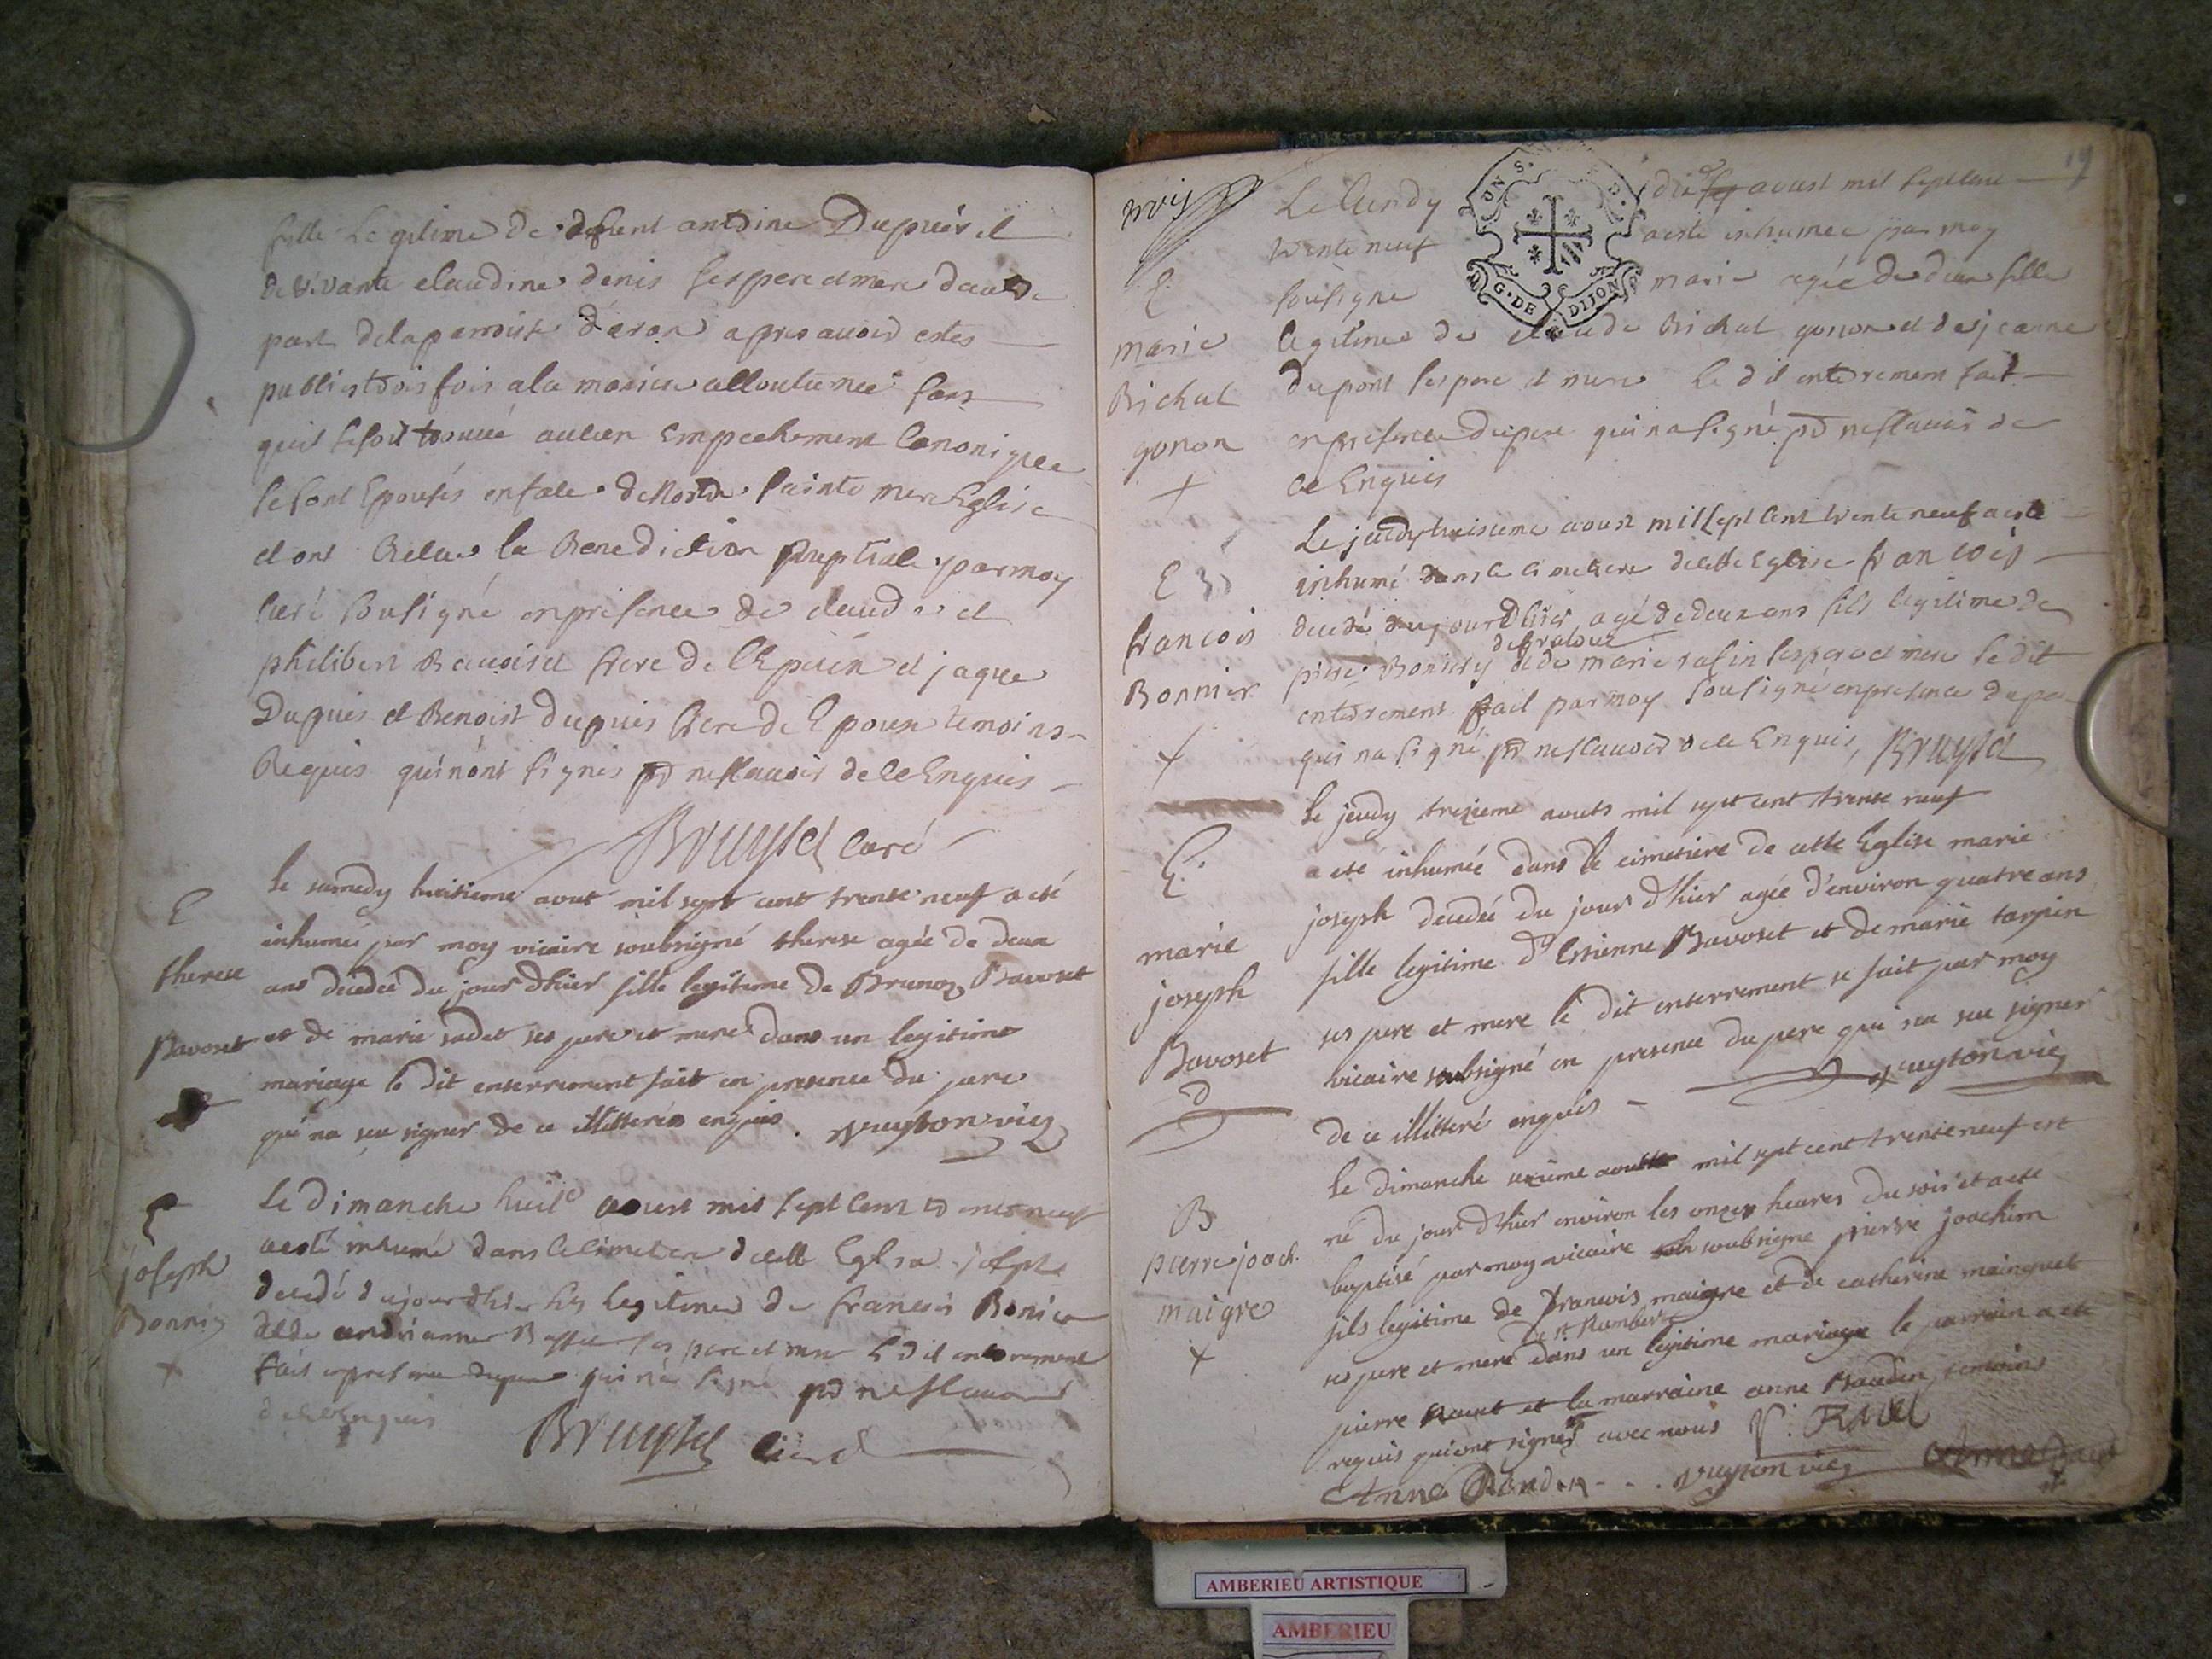 fille Legitime de defunt antoine Dupuis et
de vivante claudine denis ses pere et mere dautre
part de la parroisse d'aron apres avoir estes
publies trois fois a la maniere accoutumee sans
quil se soit trouvé aucun Empechement Canonique
se sont Epousés en face de Nostre Sainte mere Eglise
et ont Recu la Benediction Nuptiale par moy
Curé sousigné en presence de claude et
philibert Bavoiset frere de l'Epouse et jaque
Dupuis et Benoist dupuis frere de l'Epoux temoins
Requis qui n'ont signés pr ne scavoir de ce Enquis
Bruyset Curé
E
therese
Bavoset
le samedy huitieme aout mil sept cent trente neuf a eté
inhumée par moy vicaire soubsigné therese agée de deux
ans decedée du jour d'hier fille legitime de Brunoz Bavoset
et de marie sadet ses pere et mere dans un legitime
mariage le dit enterrement fait en presence du pere
qui na seu signer de ce illitteré enquis . vuyton vic
E
joseph
Bonnier
Le dimanche huit aoust mil sept Cent trente neuf
a esté inhumé dans le Cimetiere de cette Eglise joseph
decedé du jour dhier fils Legitime de francois Bonier
et de andrianne ses pere et mere Le dit enterrement
fait en presence du pere qui na signé pr ne scavoir
de ce Enquis
Bruyset Curé
19
trois
E
marie
Bichat
gonon
Le Lundy aoust mil sept cent
trente neuf a esté inhumée par moy
sousigne marie agée de deux fille
legitime de claude Bichat gonon et de jeanne
dupont ses pere et mere Le dit enterrement fait
en presence du pere qui na signé pr ne scavoir de
ce Enquis
UN S.
G. DE DIJON
E
francois
Bonnier
Le jeudy aoust mil sept Cent trente neuf a esté
inhumé dans le Cimetiere de cette Eglise francois
decedé du jour d'hier agé de deux ans fils legitime de
pierre Bonier et de marie rafin ses pere et mere le dit
enterrement fait par moy sousigné en presence du pere
qui na signé pr ne scavoir de ce Enquis, Bruyset
E
marie
joseph
Bavoset
le jeudy treizieme aouts mil sept cent trente neuf
a eté inhumée dans le cimetiere de cette Eglise marie
joseph decedée du jour d'hier agée d'environ quatre ans
fille legitime d'Estienne Bavoset et de marie tarpin
ses pere et mere le dit enterrement se fait par moy
vicaire soubsigné en presence du pere qui na seu signer
de ce illitteré enquis vuyton vic
B
pierre joach.
maigre
le dimanche seizieme aoust mil sept cent trente neuf est
né du jour d'hier environ les onze heures du soir et a eté
baptisé par moy vicaire soubsigne pierre joachim
fils legitime de francois maigre et de catherine mainguet
de st Rambert
ses pere et mere dans un legitime mariage le parrain a eté
pierre Ravet et la marraine anne Baudin temoins
requis qui ont signés avec nous P. Ravet
Anne Baudin vuyton vic
AMBERIEU ARTISTIQUE
AMBERIEU